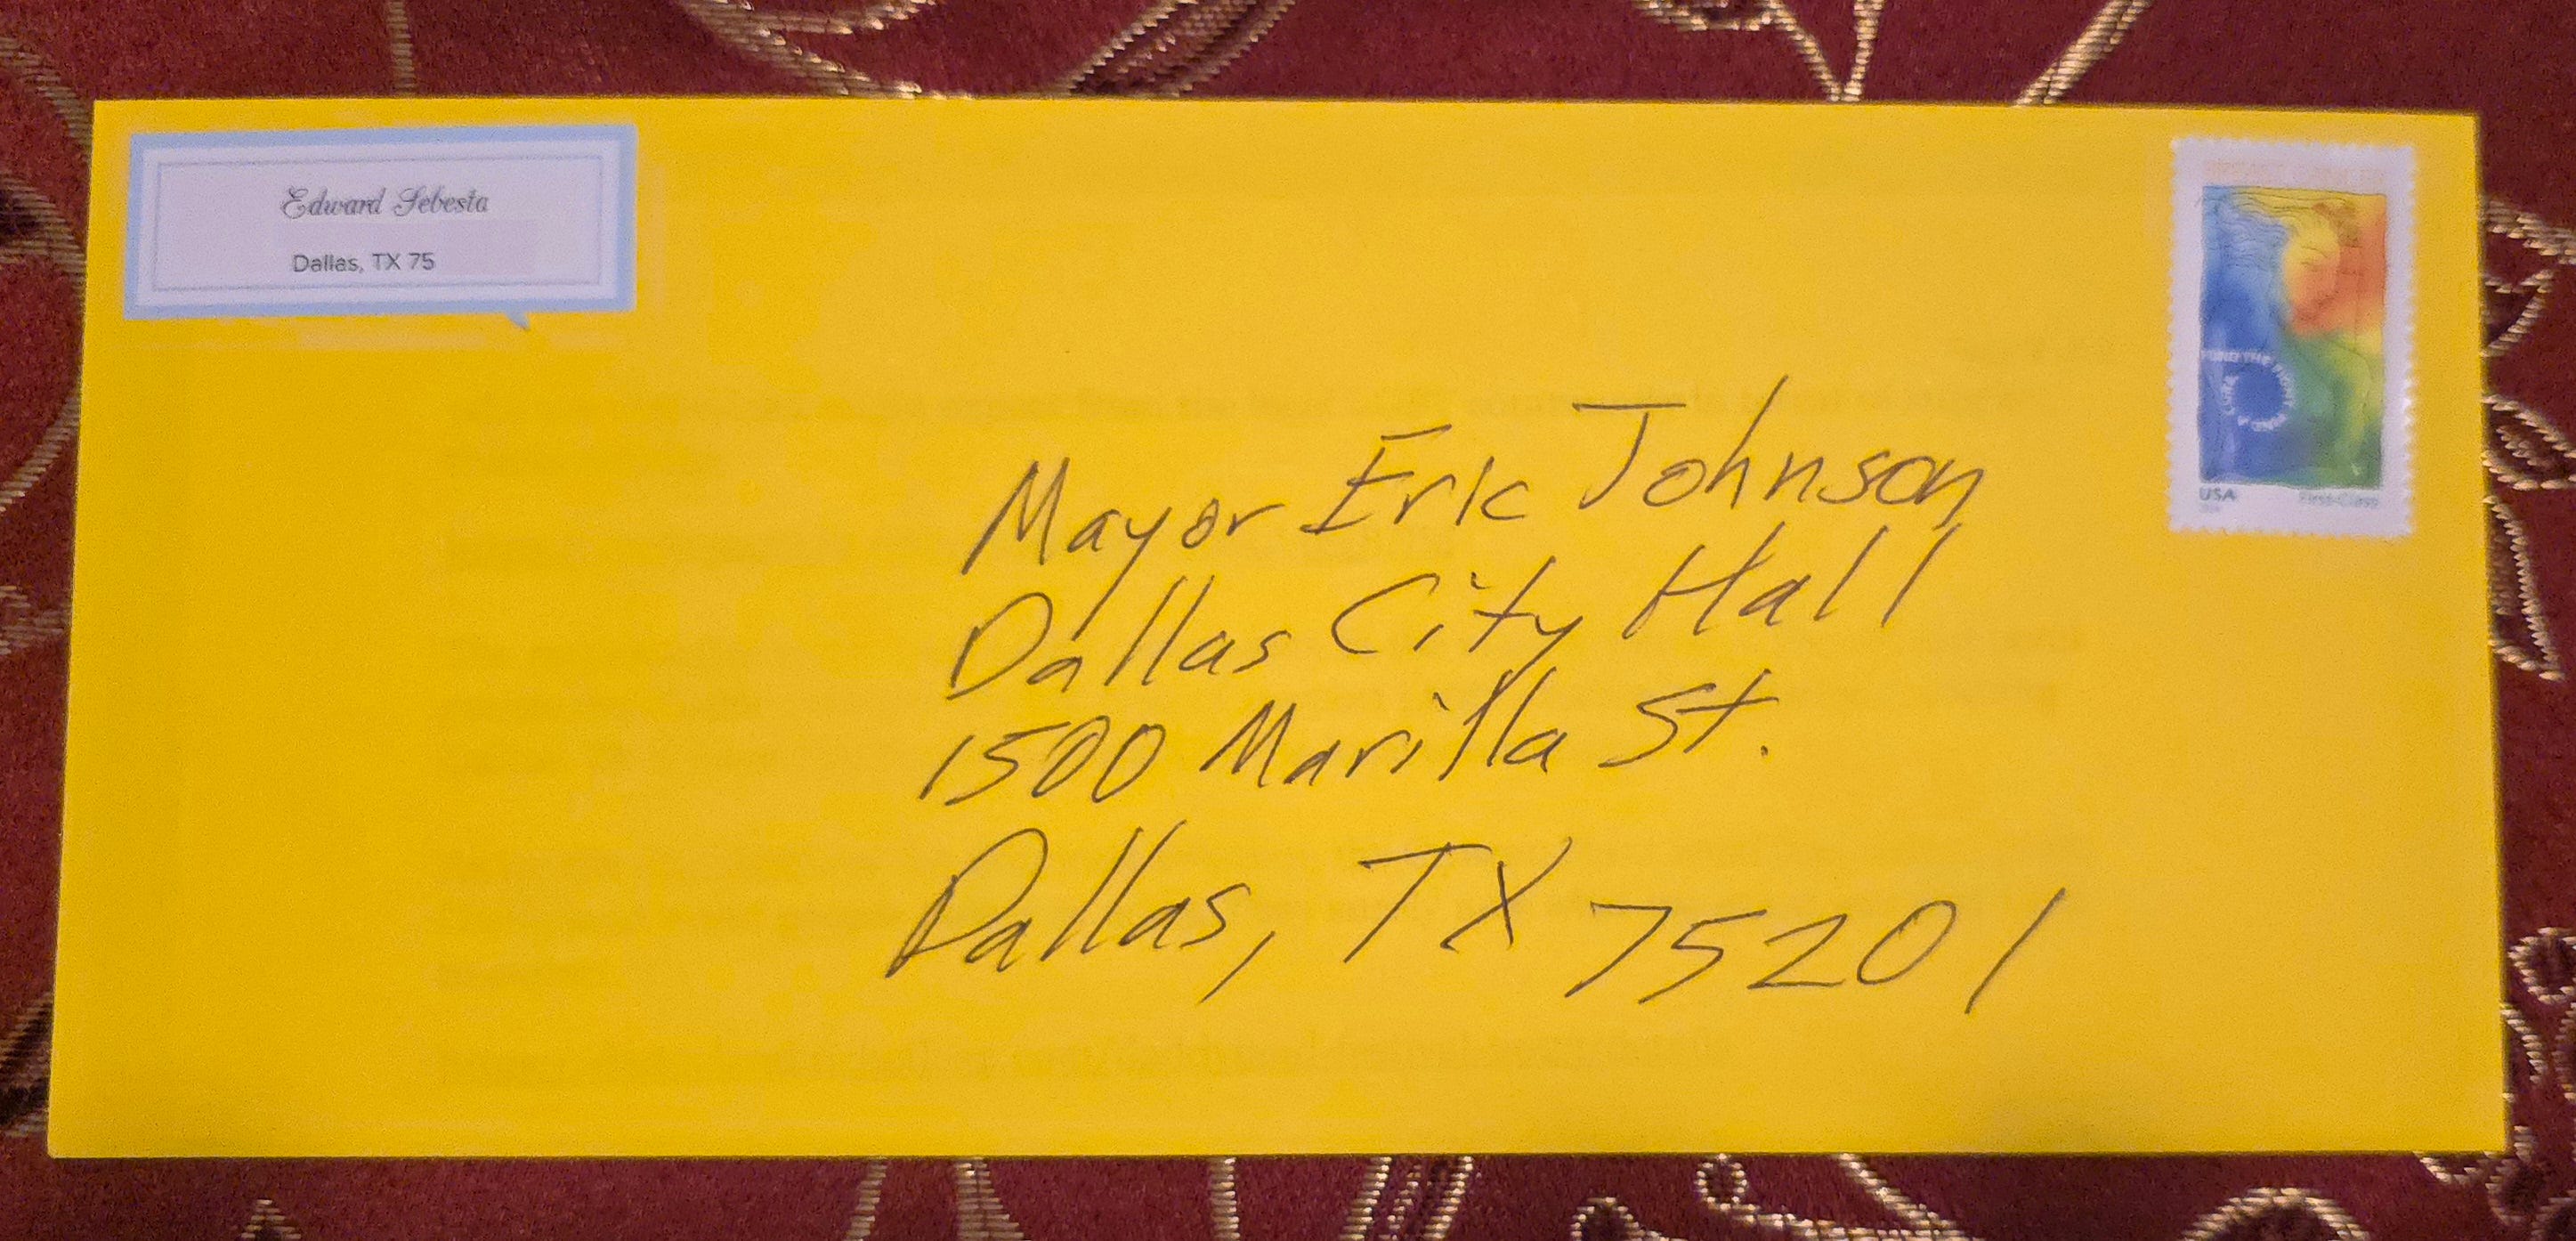 Edward Sebesta
Dallas, TX 75
FUND THE FIGHT. FIND A CURE.
USA
First-Class
Mayor Eric Johnson
Dallas City Hall
1500 Marilla St.
Dallas, TX 75201